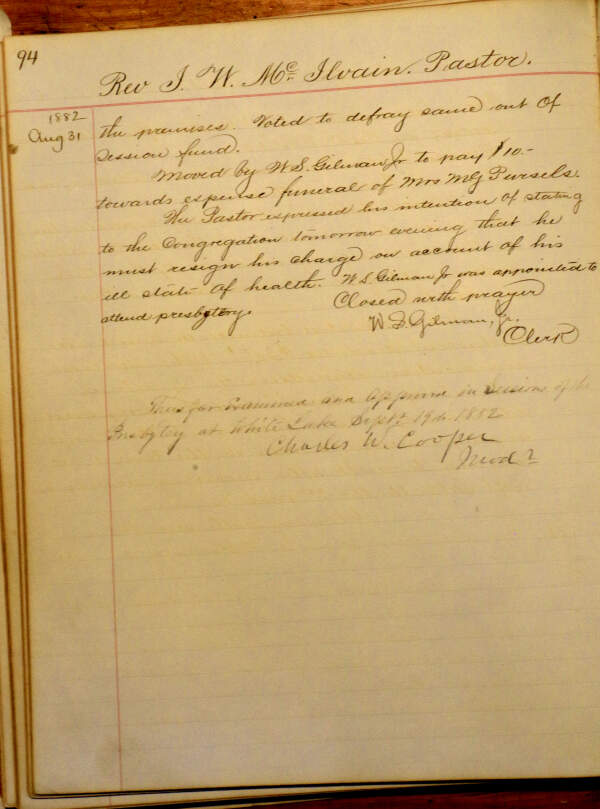 94
Rev J. W. McIlvain. Pastor.
1882
Aug 31
the premises. Voted to defray same out of
Session fund.
Moved by W.S. Gilman Jr to pay $10.-
towards expense funeral of Mrs M G Pursels.
The Pastor expressed his intention of stating
to the Congregation tomorrow evening that he
must resign his charge on account of his
ill state of health. W S Gilman Jr was appointed to
attend presbytery. Closed with prayer
W. S. Gilman, Jr.
Clerk
Thus far Examined and Approved in Sessions of the
Presbytery at White Lake Sept 19th 1882
Charles W. Cooper
Modr